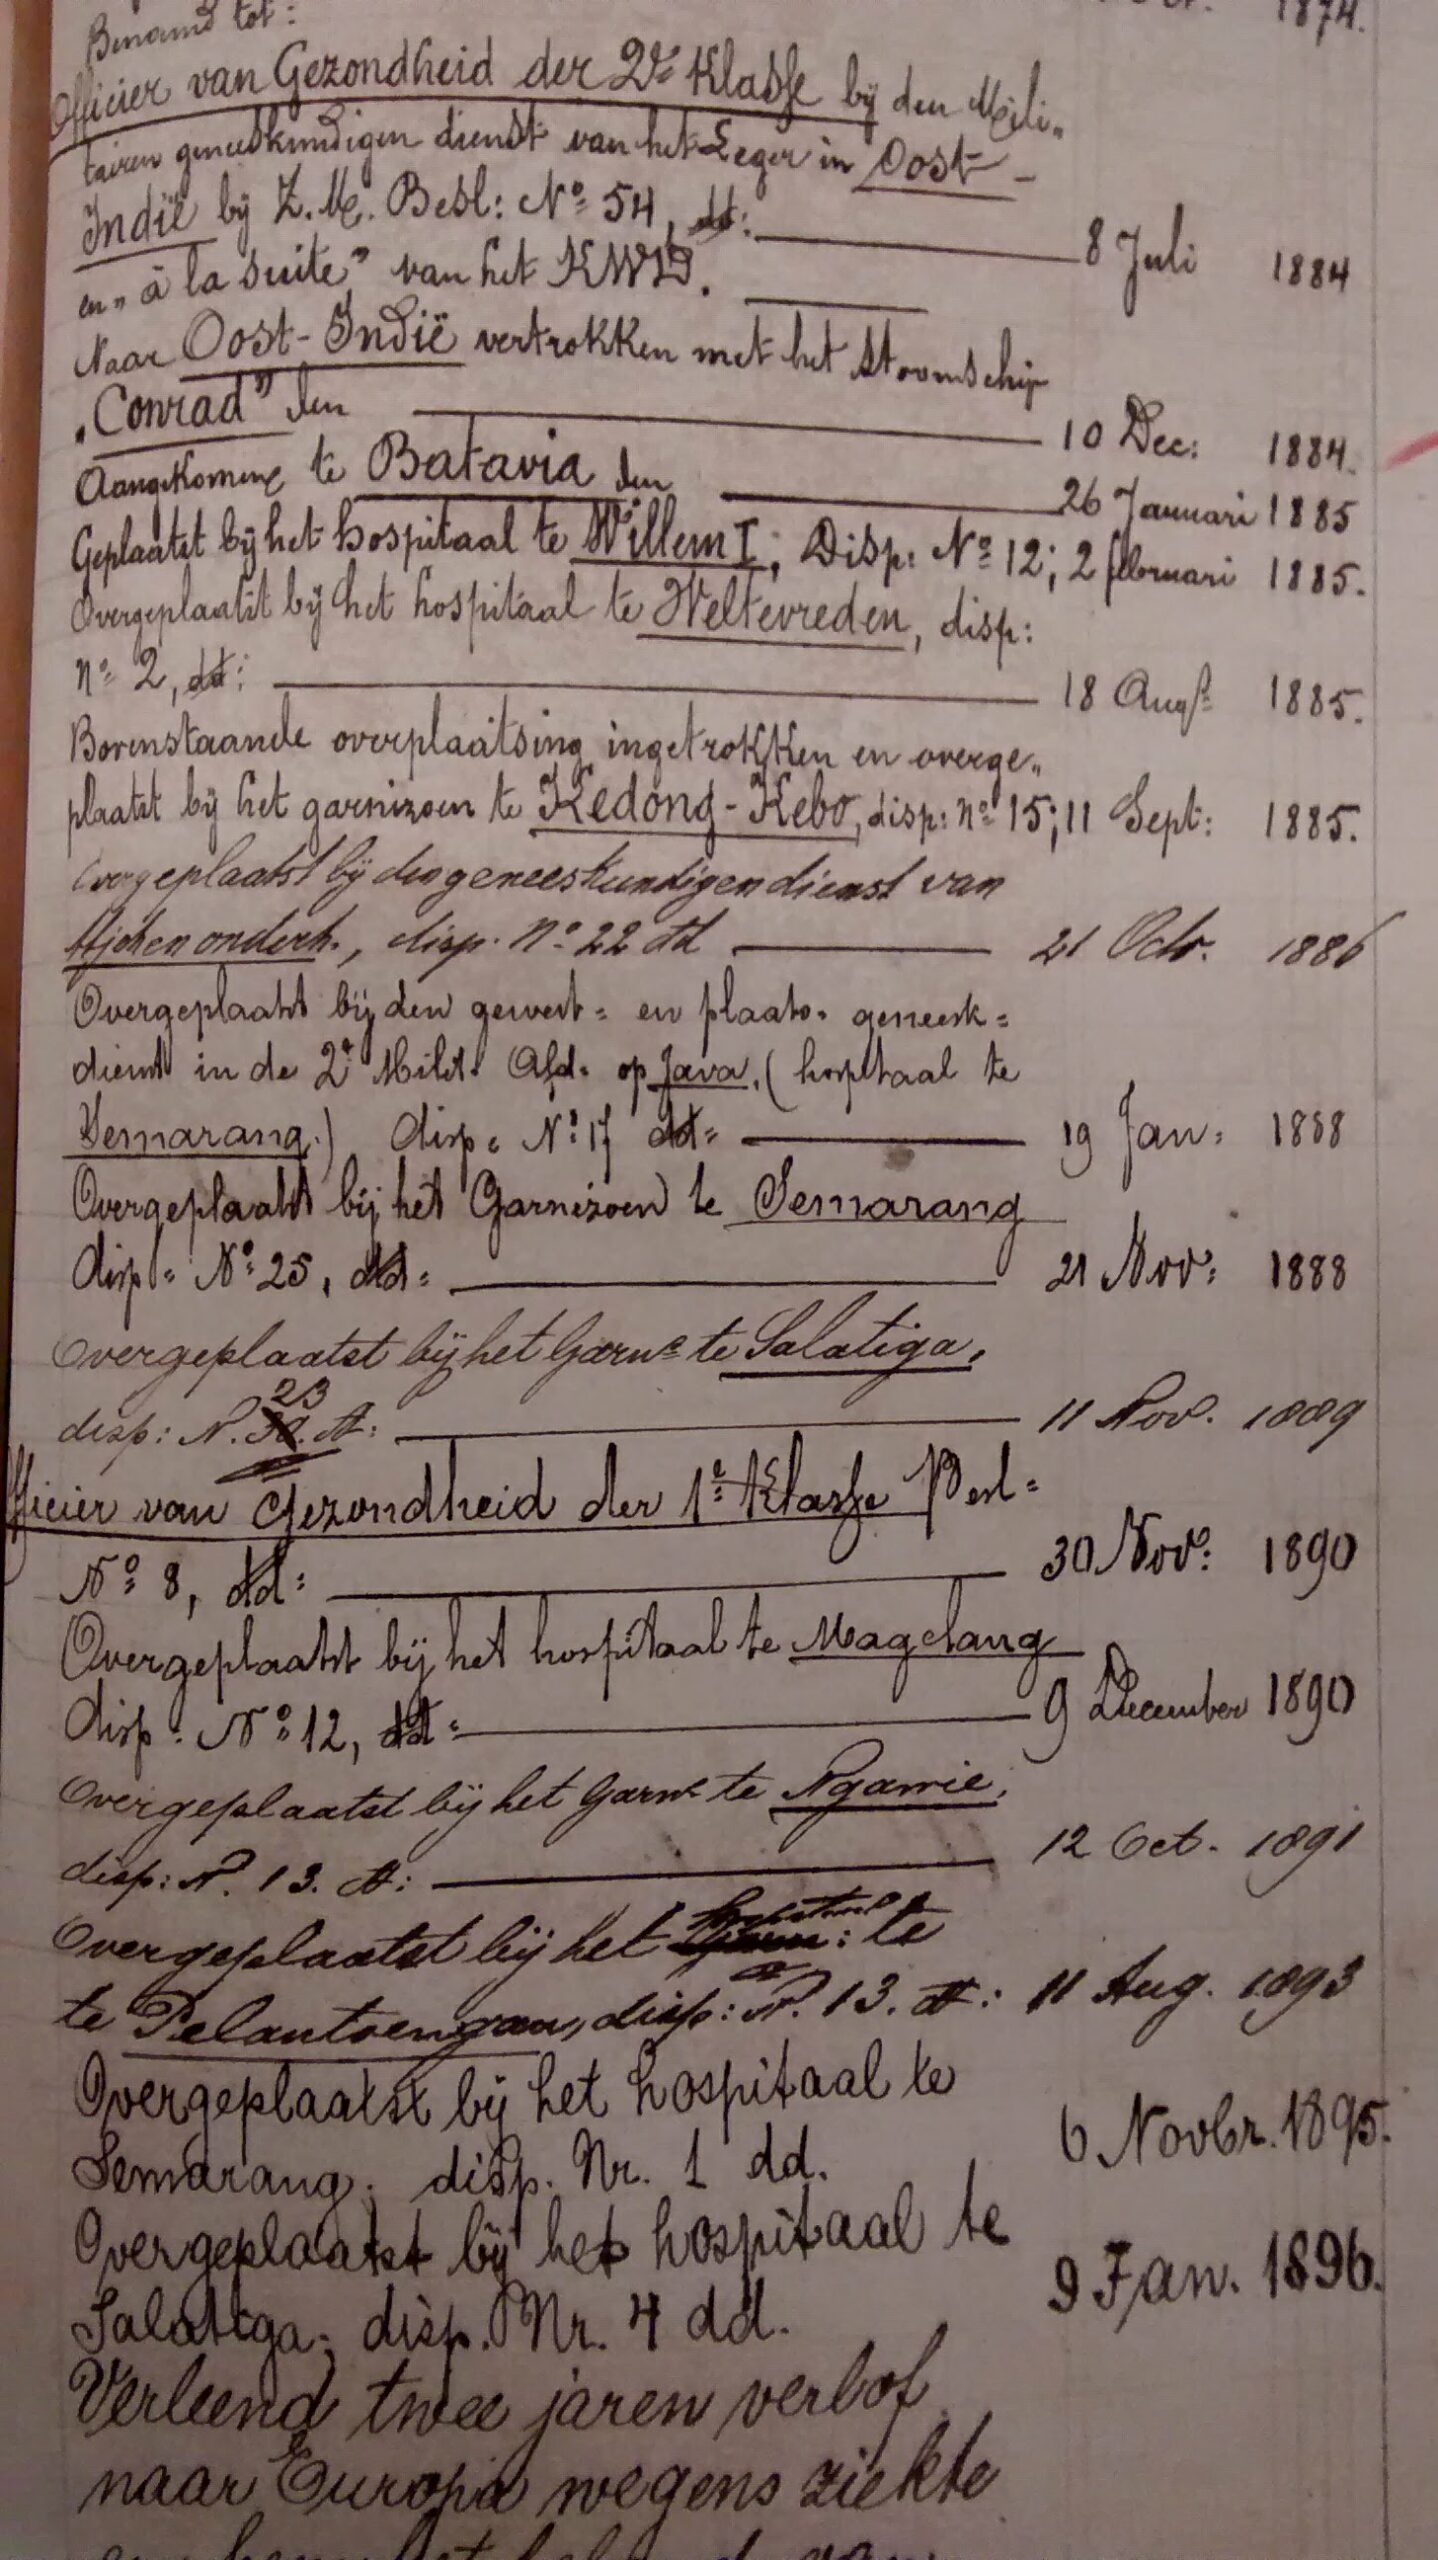 1874.
Benoemd tot:
Officier van Gezondheid der 2de Klasse bij den Mili„
tairen geneeskundigen dienst van het Leger in Oost-
Indië bij Z.M. Besl: No 54, dd: 8 Juli 1884
en „à la suite" van het
Naar Oost-Indië vertrokken met het stoomschip
„Conrad" den 10 Dec: 1884.
Aangekomen te Batavia den 26 Januari 1885
Geplaatst bij het hospitaal te Willem I; Disp: No 12; 2 februari 1885.
Overgeplaatst bij het hospitaal te Weltevreden, disp:
no 2, dd: 18 Augs 1885.
Bovenstaande overplaatsing ingetrokken en overge„
plaatst bij het garnizoen te Kedong-Kebo, disp: no 15; 11 Sept: 1885.
Overgeplaatst bij den geneeskundigen dienst van
Atjeh en onderh., disp. No 22 dd 21 Octr. 1886
Overgeplaatst bij den gewest= en plaats. geneesk=
dienst in de 2e Milit. Afd. op Java. (hospitaal te
Semarang.) disp= No 17 dd= 19 Jan: 1888
Overgeplaatst bij het Garnizoen te Semarang
disp= No 25, dd= 21 Nov: 1888
Overgeplaatst bij het Garnn te Salatiga,
23
disp: N. 30. dd: 11 Nov. 1889
Officier van Gezondheid der 1e Klasse Besl=
No 8, dd: 30 Nov: 1890
Overgeplaatst bij het hospitaal te Magelang
disp: No 12, dd= 9 December 1890
Overgeplaatst bij het Garnn te Ngawie,
disp: N. 13. dd: 12 Oct. 1891
hospitaal
Overgeplaatst bij het Garn: te
te Pelantoengan, disp: N. 13. dd: 11 Aug. 1893
Overgeplaatst bij het hospitaal te
Semarang; disp. Nr. 1 dd. 6 Novbr. 1895.
Overgeplaatst bij het hospitaal te
Salatiga; disp. Nr. 4 dd. 9 Jan. 1896.
Verleend twee jaren verlof
naar Europa wegens ziekte